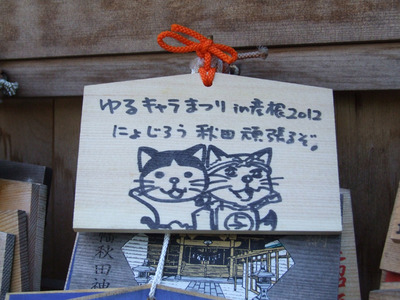 ゆるキャラまつり in 彦根2012
にょじろう 秋田 頑張るぞ。
秋田神